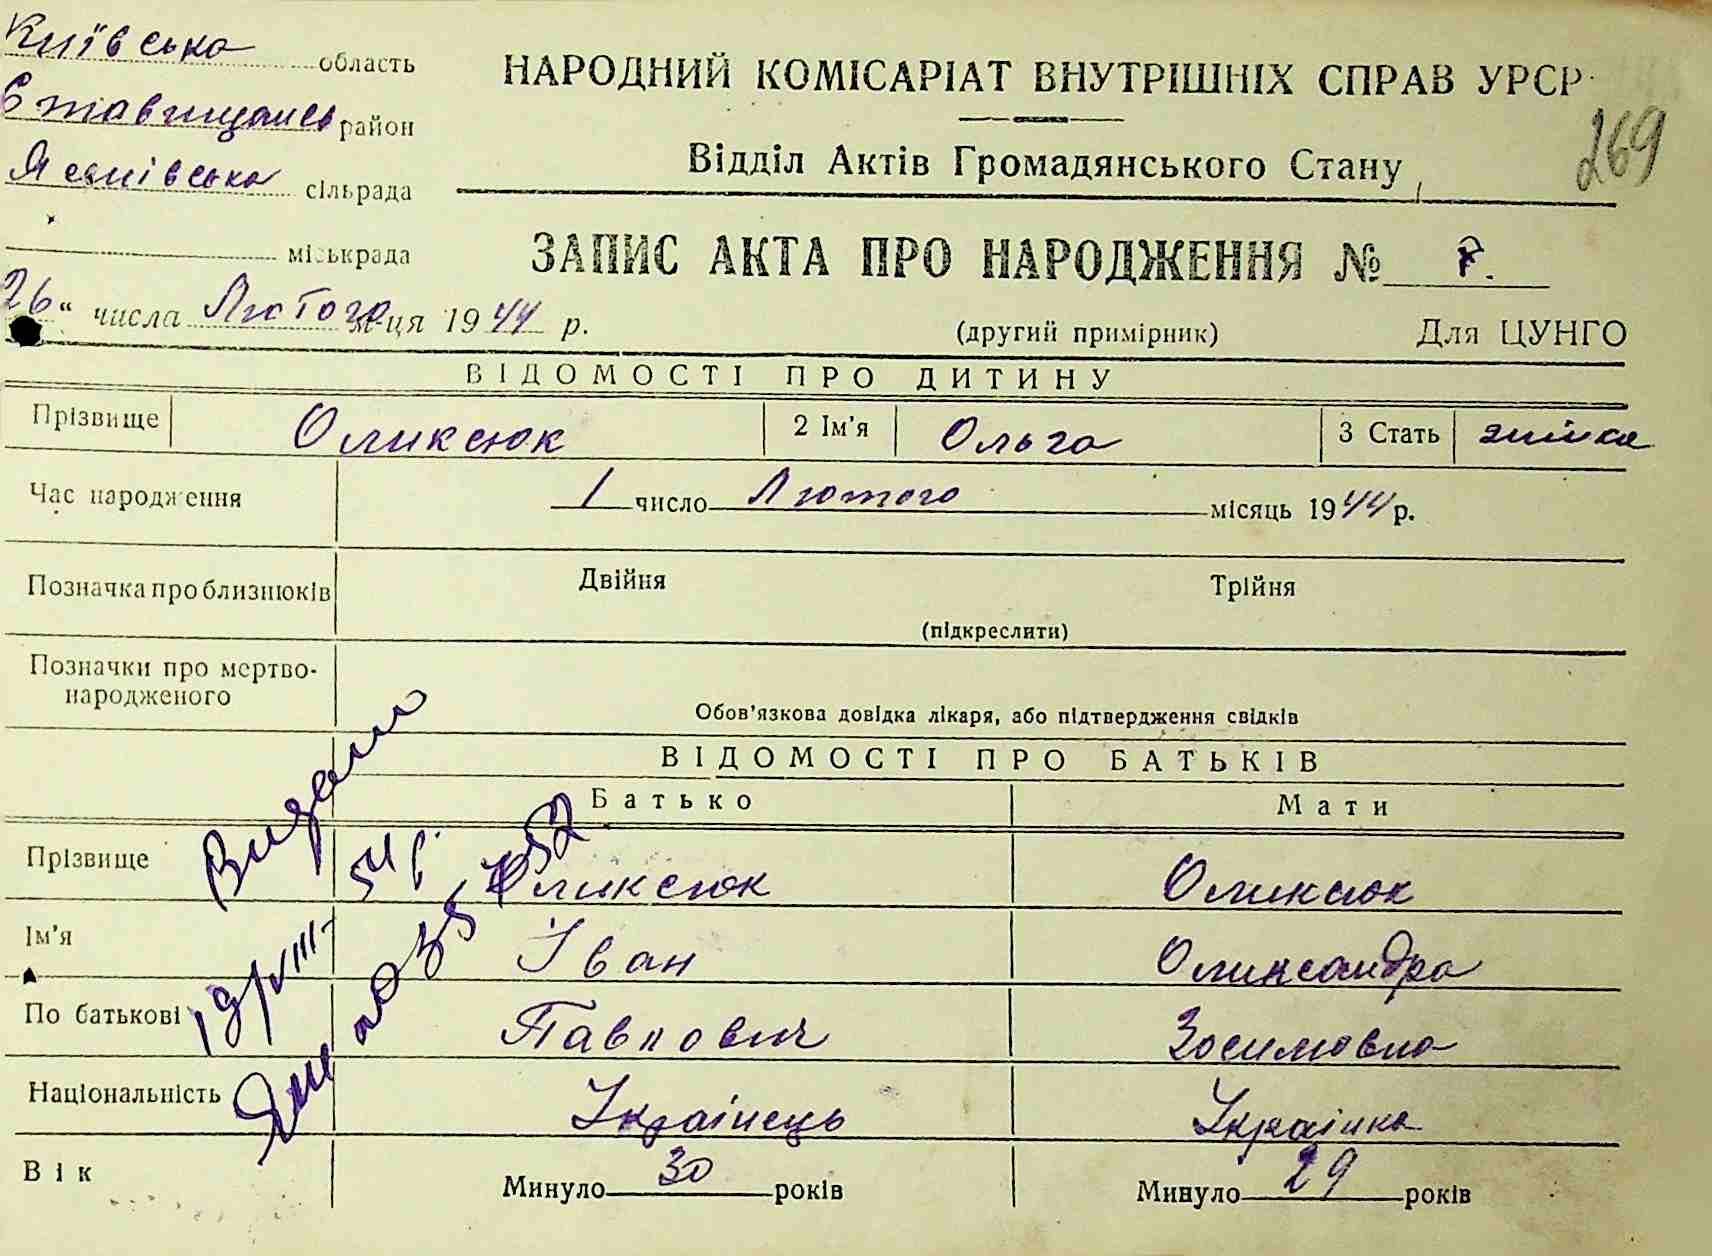 Київська область
Ставищанськ район
Яснівська сільрада
міськрада
26 " числа Лютого м-ця 1944 р.
НАРОДНИЙ КОМІСАРІАТ ВНУТРІШНІХ СПРАВ УРСР
Відділ Актів Громадянського Стану
269
ЗАПИС АКТА ПРО НАРОДЖЕННЯ № 7.
(другий примірник) Для ЦУНГО
ВІДОМОСТІ ПРО ДИТИНУ
Прізвище Оликсюк 2 Ім'я Ольга 3 Стать
Час народження 1 число Лютого місяць 1944 р.
Позначка про близнюків Двійня Трійня
(підкреслити)
Позначки про мертво-
народженого
Обов'язкова довідка лікаря, або підтвердження свідків
ВІДОМОСТІ ПРО БАТЬКІВ
Батько Мати
Прізвище Оликсюк Оликсюк
Ім'я Іван Олександра
По батькові Павлович Зосимовна
Національність Українець Українка
Вік Минуло 30 років Минуло 29 років
Видано
19/VIII-
54 р.